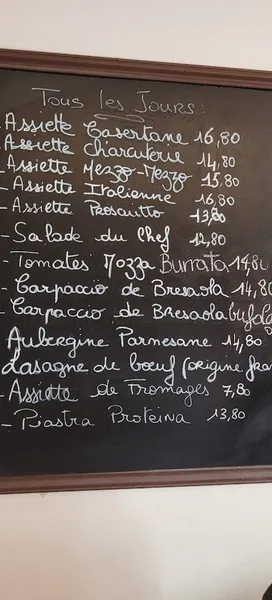 Tous les Jours :
- Assiette Casertane 16,80
- Assiette Charcuterie 14,80
- Assiette Mezzo-Mezzo 15,80
- Assiette Italienne 16,80
- Assiette Proscuitto 13,80
- Salade du Chef 12,80
- Tomates Mozza Burrata 14,80
- Carpaccio de Bresaola 14,80
- Carpaccio de Bresaola bufala
Aubergine Parmesane 14,80
Lasagne de bœuf (origine fra
- Assiette de Fromages 7,80
- Piastra Proteina 13,80